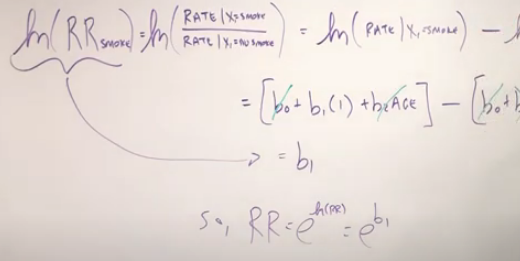 ln(RR SMOKE) = ln(RATE|X₁=SMOKE / RATE|X₁=NO SMOKE) = ln(RATE|X₁=SMOKE) − l
= [b₀ + b₁(1) + b₂AGE] − [b₀ + b
= b₁
So, RR = e^ln(RR) = e^b₁